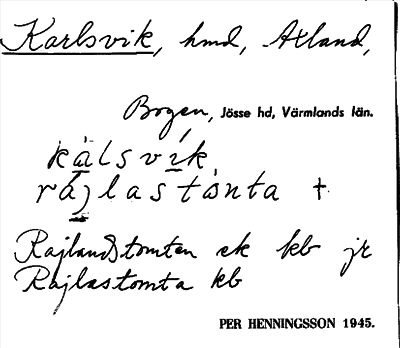 Karlsvik, hmd, Älland,
Bogen, Jösse hd, Värmlands län.
kàlsvík
rájlastònta +
Rajlandstomten ek kb jr
Rajlastomta kb
PER HENNINGSSON 1945.